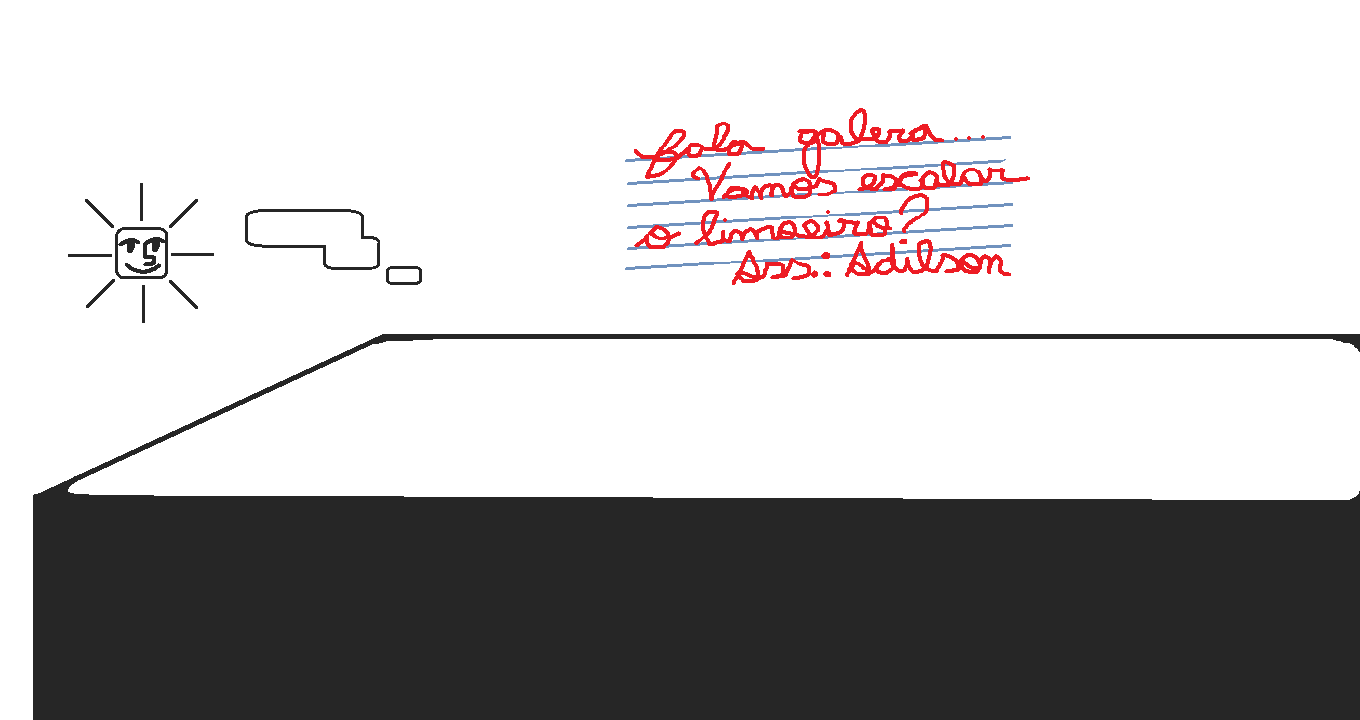 fala galera...
Vamos escalar
o limoeiro?
Ass.: Adilson